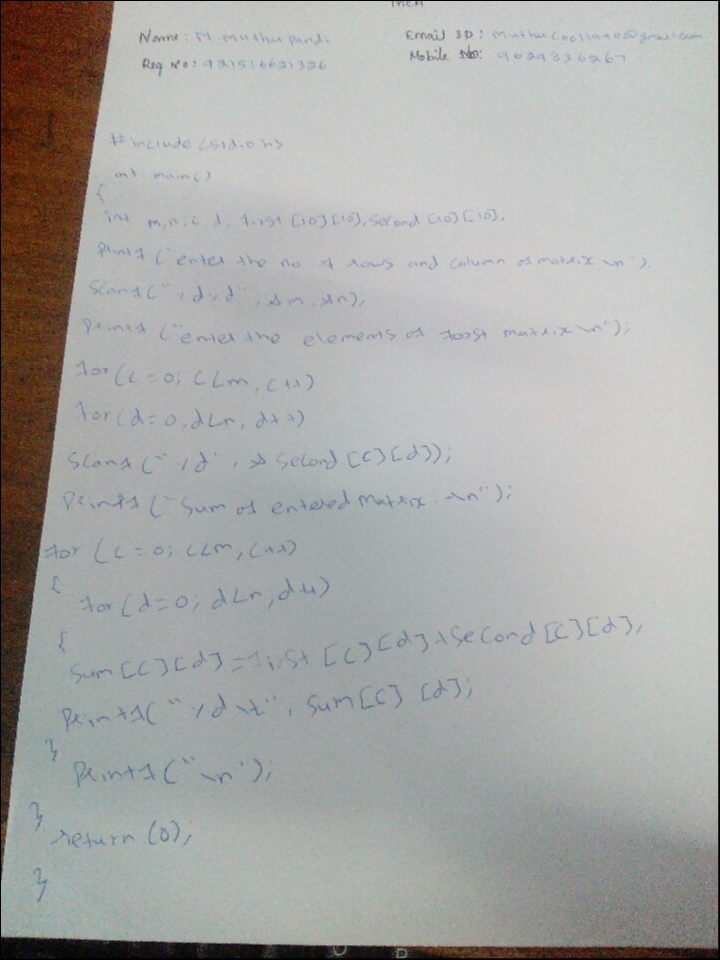 MCA
Name: M. Muthu Pandi
Email ID:
Reg No: 921516621326
Mobile No: 9629836267
#include <std.o h>
int main()
{
int m,n,c,d, first [10][10], second [10][10],
printf ("enter the no of rows and column of matrix \n");
scanf ("%d%d", &m, &n);
printf ("enter the elements of first matrix \n");
for (c=0; c<m, c++)
for (d=0, d<n, d++)
scanf ("%d", & second [c][d]);
printf ("Sum of entered matrix: \n");
for (c=0; c<m, c++)
{
for (d=0; d<n, d++)
{
sum [c][d] = first [c][d] + second [c][d],
printf ("%d\t", sum [c] [d];
}
printf ("\n");
}
return (0);
}